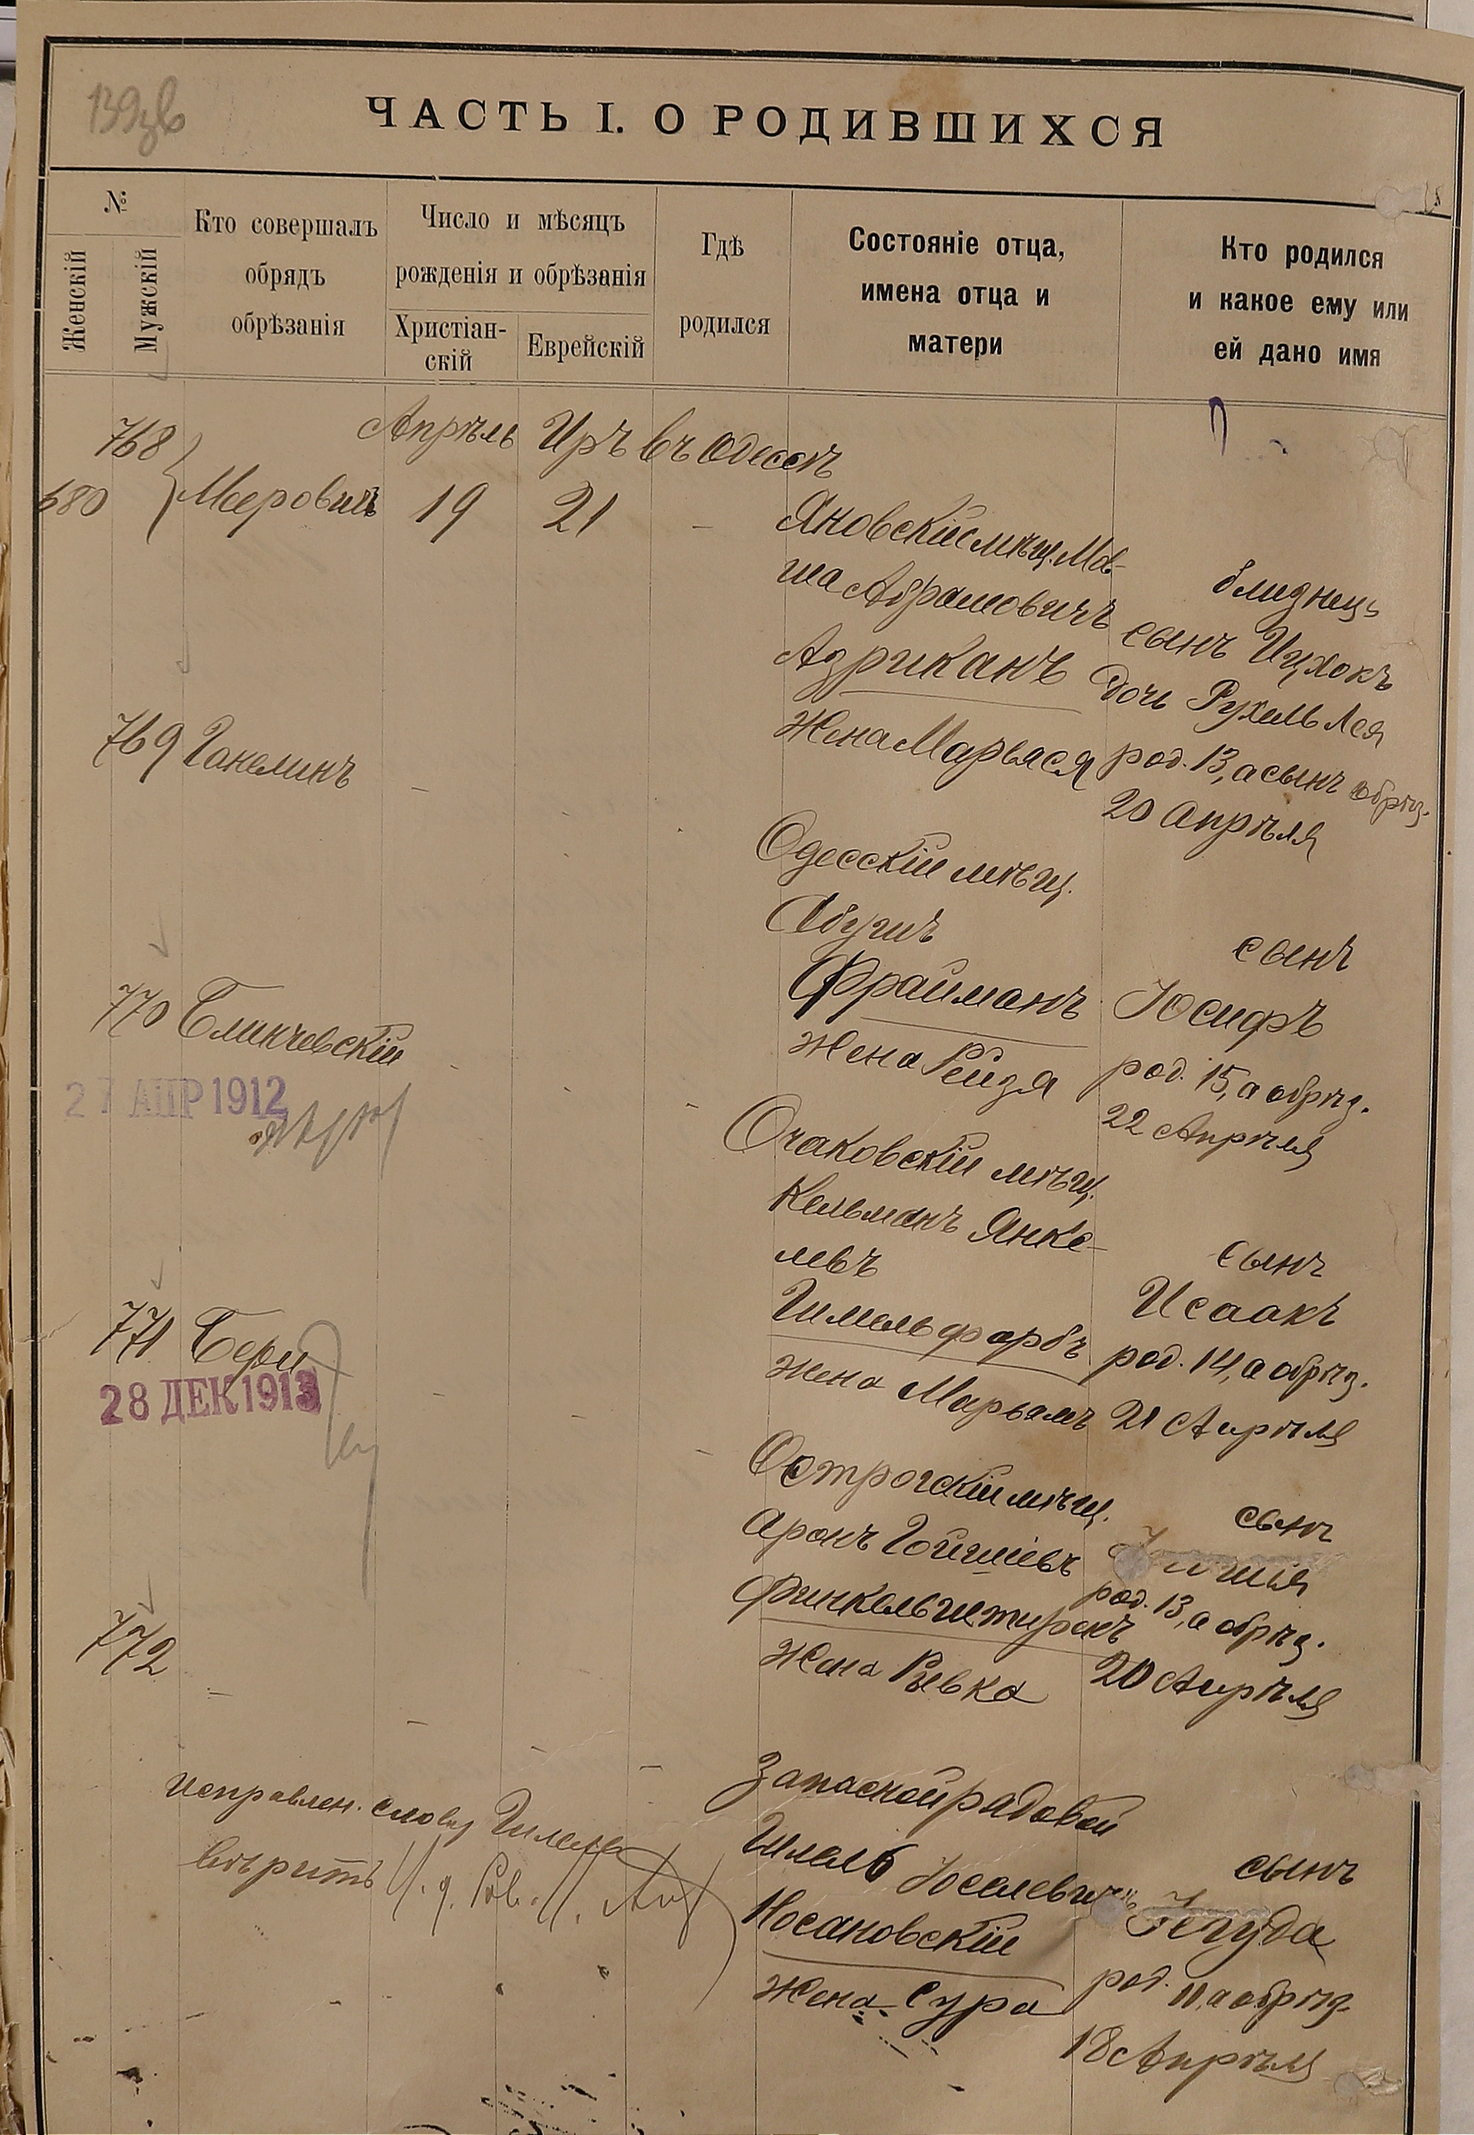 139 зв
ЧАСТЬ I. О РОДИВШИХСЯ
№
Женскій
Мужскій
Кто совершалъ
обрядъ
обрѣзанія
Число и мѣсяцъ
рожденія и обрѣзанія
Христіан-
скій
Еврейскій
Гдѣ
родился
Состояніе отца,
имена отца и
матери
Кто родился
и какое ему или
ей дано имя
768
680
Меровичъ
Апрѣль
19
Иръ
21
въ Одессѣ
Яновскій мѣщ. Мов-
ша Абрамовичъ
Адриканъ
жена Марьяся
близнецы
сынъ Ицхокъ
дочь Рухель Лея
род. 13, а сынъ обрѣз.
20 Апрѣля
769 Ганелинъ
Одесскій мѣщ.
Абушъ
Фрайманъ
жена Рейзя
сынъ
Іосифъ
род. 15, а обрѣз.
22 Апрѣля
770 Блинчевскій
27 АПР 1912
Очаковскій мѣщ.
Кельманъ Янке-
левъ
Гимельфарбъ
жена Марьямъ
сынъ
Исаакъ
род. 14, а обрѣз.
21 Апрѣля
771
28 ДЕК 1913
Острогскій мѣщ.
Аронъ
Финкельштерн
жена Ривка
сынъ
род. 13, а обрѣз.
20 Апрѣля
772
Запасной рядовой
Шлема Іоселевичъ
Носановскій
жена Сура
сынъ
Іегуда
род. 11, а обрѣз.
18 Апрѣля
исправлен. слову
вѣрить